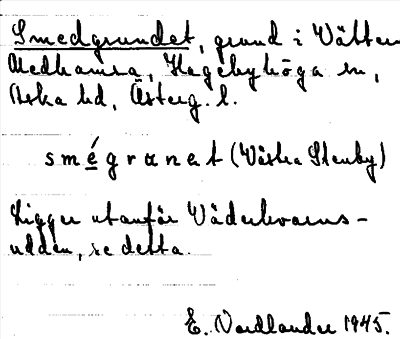 Smedgrundet, grund i Vättern
Nedhamra, Hagebyhöga sn,
Aska hd, Österg. l.
smégrunet (Västra Stenby)
Ligger utanför Väderkvarns-
udden, se detta.
E. Nordlander 1945.